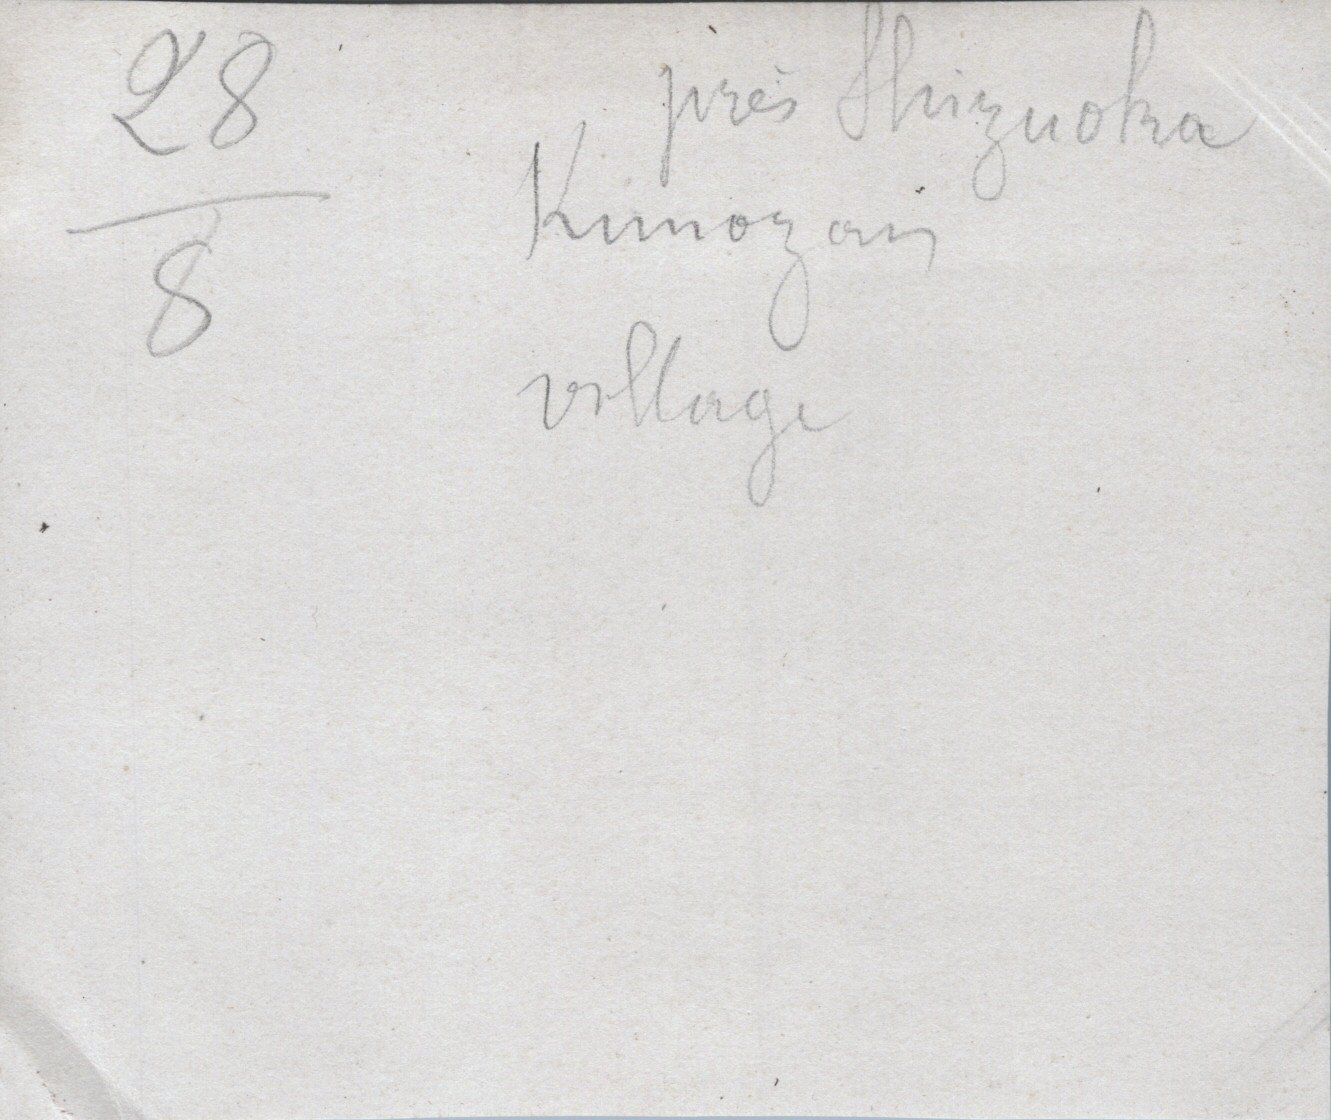 28
8
près Shizuoka
Kunozan
village